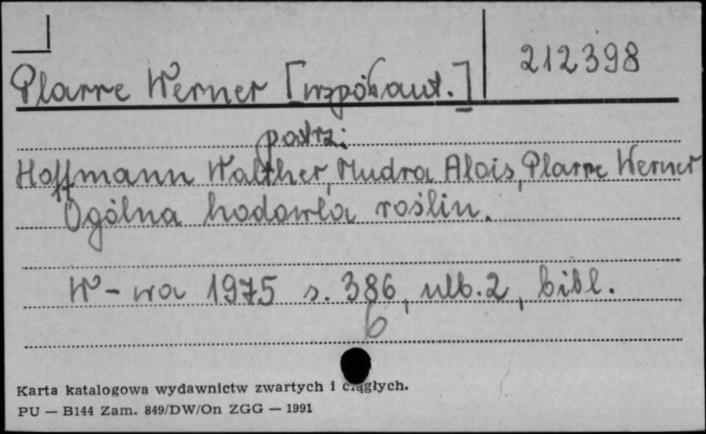 212398
Plarre Werner [współaut.]
patrz:
Hoffmann Walther, Mudra Alois, Plarre Werner
Ogólna hodowla roślin.
W-wa 1975 s. 386, nlb. 2, bibl.
6
Karta katalogowa wydawnictw zwartych i ciągłych.
PU — B144 Zam. 849/DW/On ZGG — 1991